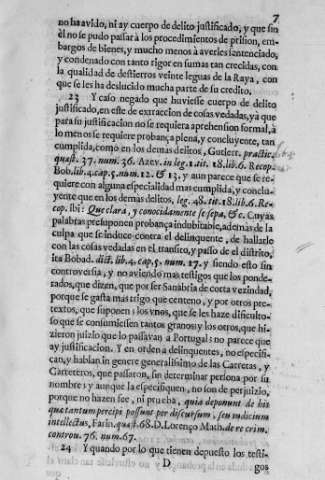 7
no ha avido, ni ay cuerpo de delito justificado, y que sin
èl no se pudo passar à los procedimientos de prision, em-
bargos de bienes, y mucho menos à averles sentenciado,
y condenado con tanto rigor en sumas tan crecidas, con
la qualidad de destierros veinte leguas de la Raya, con
que se les ha deslucido mucha parte de su credito.
23 Y caso negado que huviesse cuerpo de delito
justificado, en este de extraccion de cosas vedadas, yà que
para su justificacion no se requiera aprehension formal, à
lo menos se requiere probança plena, y concluyente, tan
cumplida, como en los demas delitos, Gutierr. practic.
quæst. 37. num. 36. Azev. in leg. 1. tit. 18. lib. 6. Recop.
Bob. lib. 4. cap. 5. num. 12. & 13. y aun parece que se re-
quiere con alguna especialidad mas cumplida, y conclu-
yente que en los demas delitos, leg. 48. tit. 18. lib. 6. Re-
cop. ibi: Que clara, y conocidamente se sepa, &c. Cuyas
palabras presuponen probança indubitable, ademàs de la
culpa que se induce contra el delinquente, de hallarle
con las cosas vedadas en el transito, y passo de el distrito,
ita Bobad. dict. lib. 4. cap. 5. num. 17. y siendo esto sin
controversia, y no aviendo mas testigos que los ponde-
rados, que dizen, que por ser Sanabria de corta vezindad,
porque se gasta mas trigo que centeno, y por otros pre-
textos, que suponen los vnos, que se les haze dificulto-
so que se consumiessen tantos granos y los otros, que hi-
zieron juizio que lo passavan à Portugal: no parece que
ay justificacion. Y en orden à delinquentes, no especifi-
can, y hablan in genere generalissimo de las Carretas, y
Carreteros, que passaron, sin determinar persona por su
nombre: y aunque la especifiquen, no son de perjuizio,
porque no hazen fee, ni prueba, quia deponunt de his
quæ tantum percipi possunt per discursum, seu iudicium
intellectus, Farin. quæst. 68. D. Lorenço Math. de re crim.
controv. 76. num. 67.
24 Y quando por lo que tienen depuesto los testi-
D gos